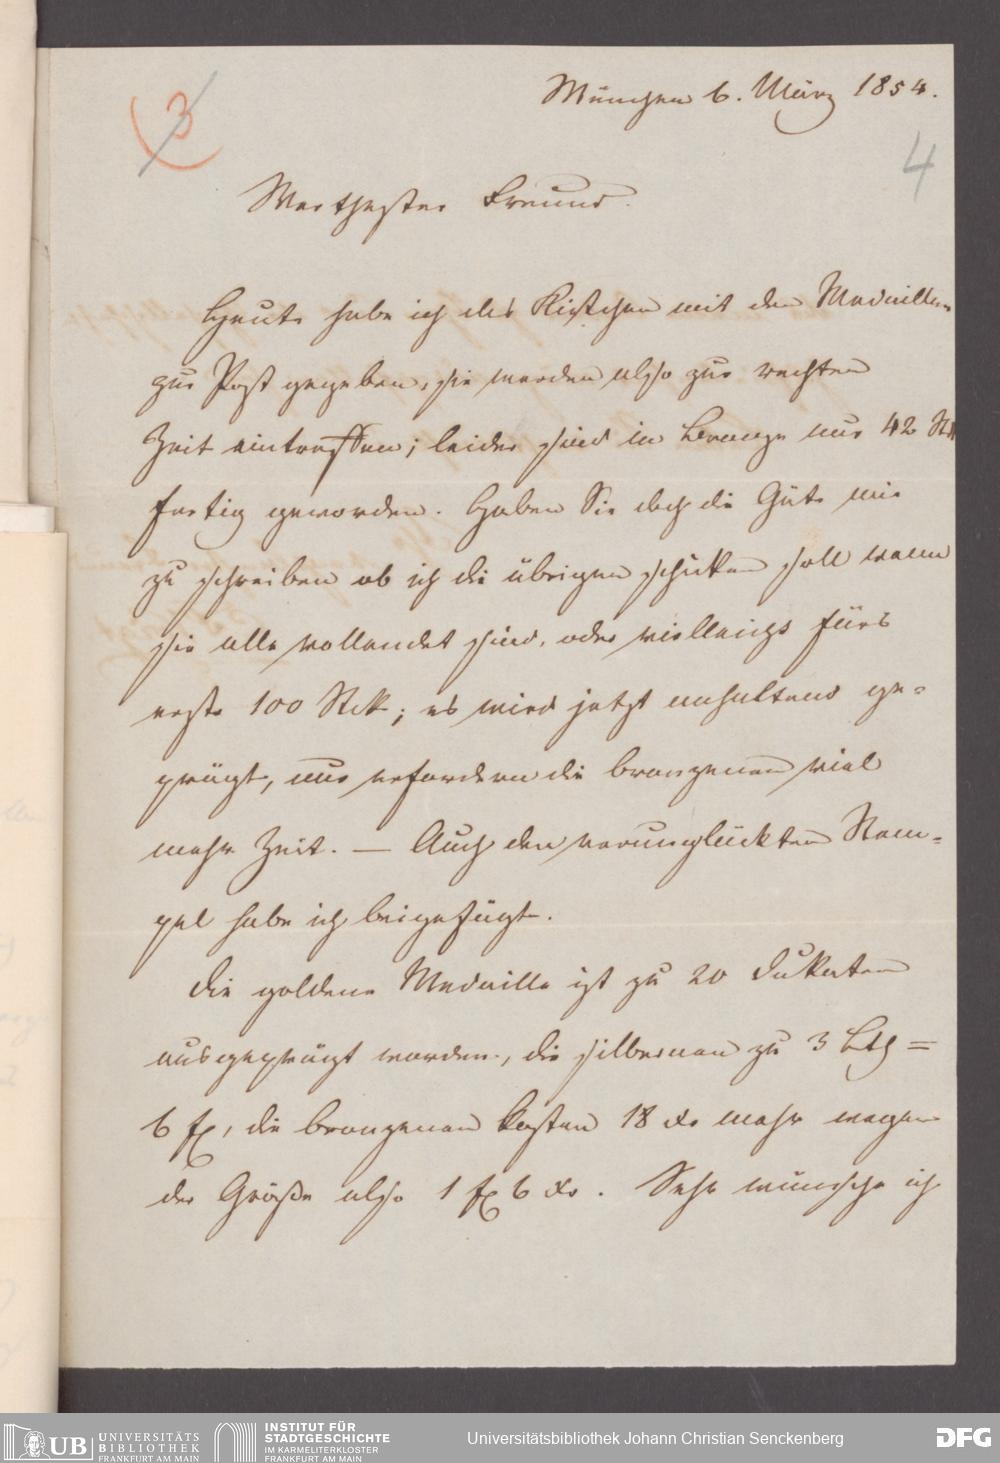 3
4
München 6. März 1854.
Werthester Freund.
Heute habe ich das Kistchen mit den Medaillen
zur Post gegeben, sie werden also zur rechten
Zeit eintreffen; leider sind in Bronze nur 42 Stk
fertig geworden. Haben Sie doch die Güte mir
zu schreiben ob ich die übrigen schicken soll wenn
sie alle vollendet sind, oder vielleicht fürs
erste 100 Stck; es wird jetzt anhaltend ge-
prägt, nur erfordern die bronzenen viel
mehr Zeit. — Auch den verunglückten Stem-
pel habe ich beigefügt.
Die goldene Medaille ist zu 20 Dukaten
ausgeprägt worden, die silbernen zu 3 Lth =
6 fl, die bronzenen kosten 18 Xr mehr wegen
der Größe also 1 fl 6 Xr. Sehr wünsche ich
UB UNIVERSITÄTS
BIBLIOTHEK
FRANKFURT AM MAIN
INSTITUT FÜR
STADTGESCHICHTE
IM KARMELITERKLOSTER
FRANKFURT AM MAIN
Universitätsbibliothek Johann Christian Senckenberg
DFG